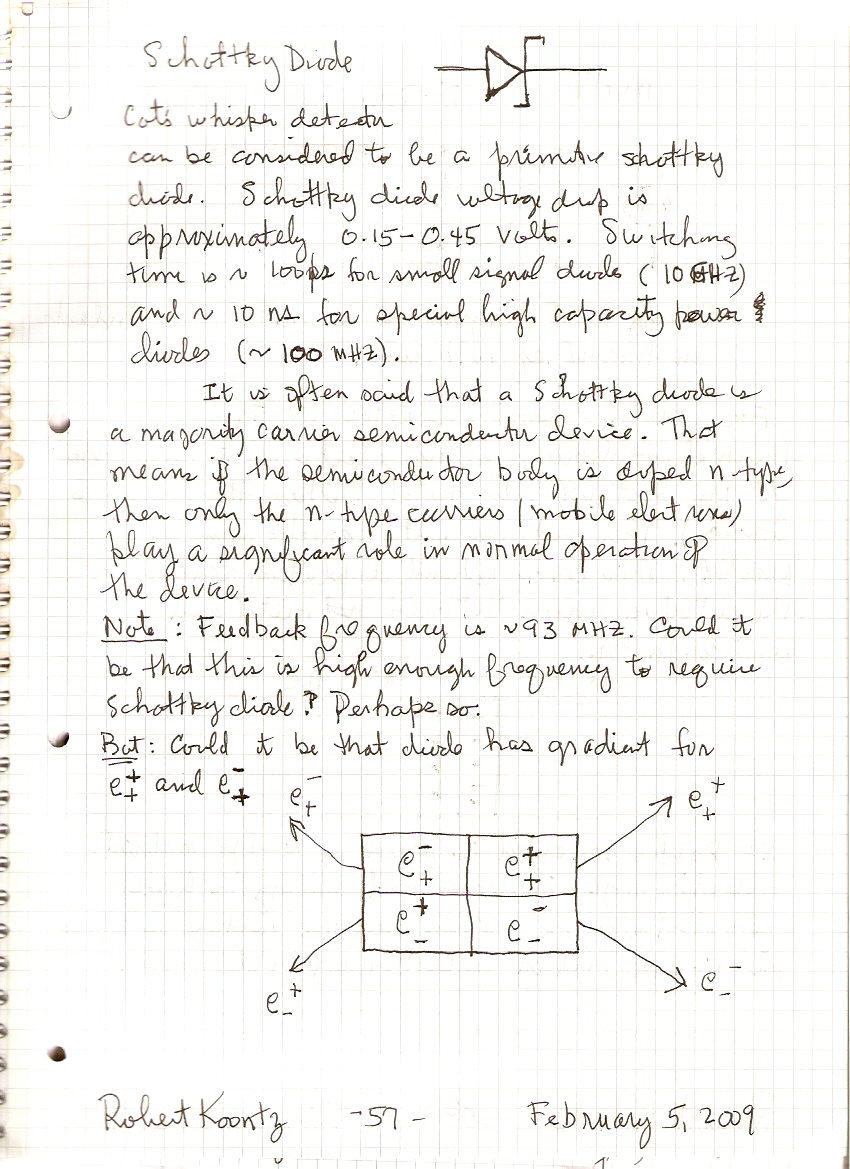 Schottky Diode
Cat's whisper detector
can be considered to be a primitive schottky
diode. Schottky diode voltage drop is
approximately 0.15-0.45 Volts. Switching
time is ~ 100ps for small signal diode (10 GHZ)
and ~ 10 ns for special high capacity power
diodes (~ 100 MHZ).
It is often said that a Schottky diode is
a majority carrier semiconductor device. That
means if the semiconductor body is doped n-type,
then only the n-type carriers (mobile electrons)
play a significant role in normal operation of
the device.
Note: Feedback frequency is ~93 MHZ. Could it
be that this is high enough frequency to require
Schottky diode? Perhaps so.
But: Could it be that diode has gradient for
e₊⁺ and e₊⁻
e₊⁻ e₊⁺
e₊⁻ e₊⁺
e₋⁺ e₋⁻
e₋⁺ e₋⁻
Robert Koontz -57- February 5, 2009